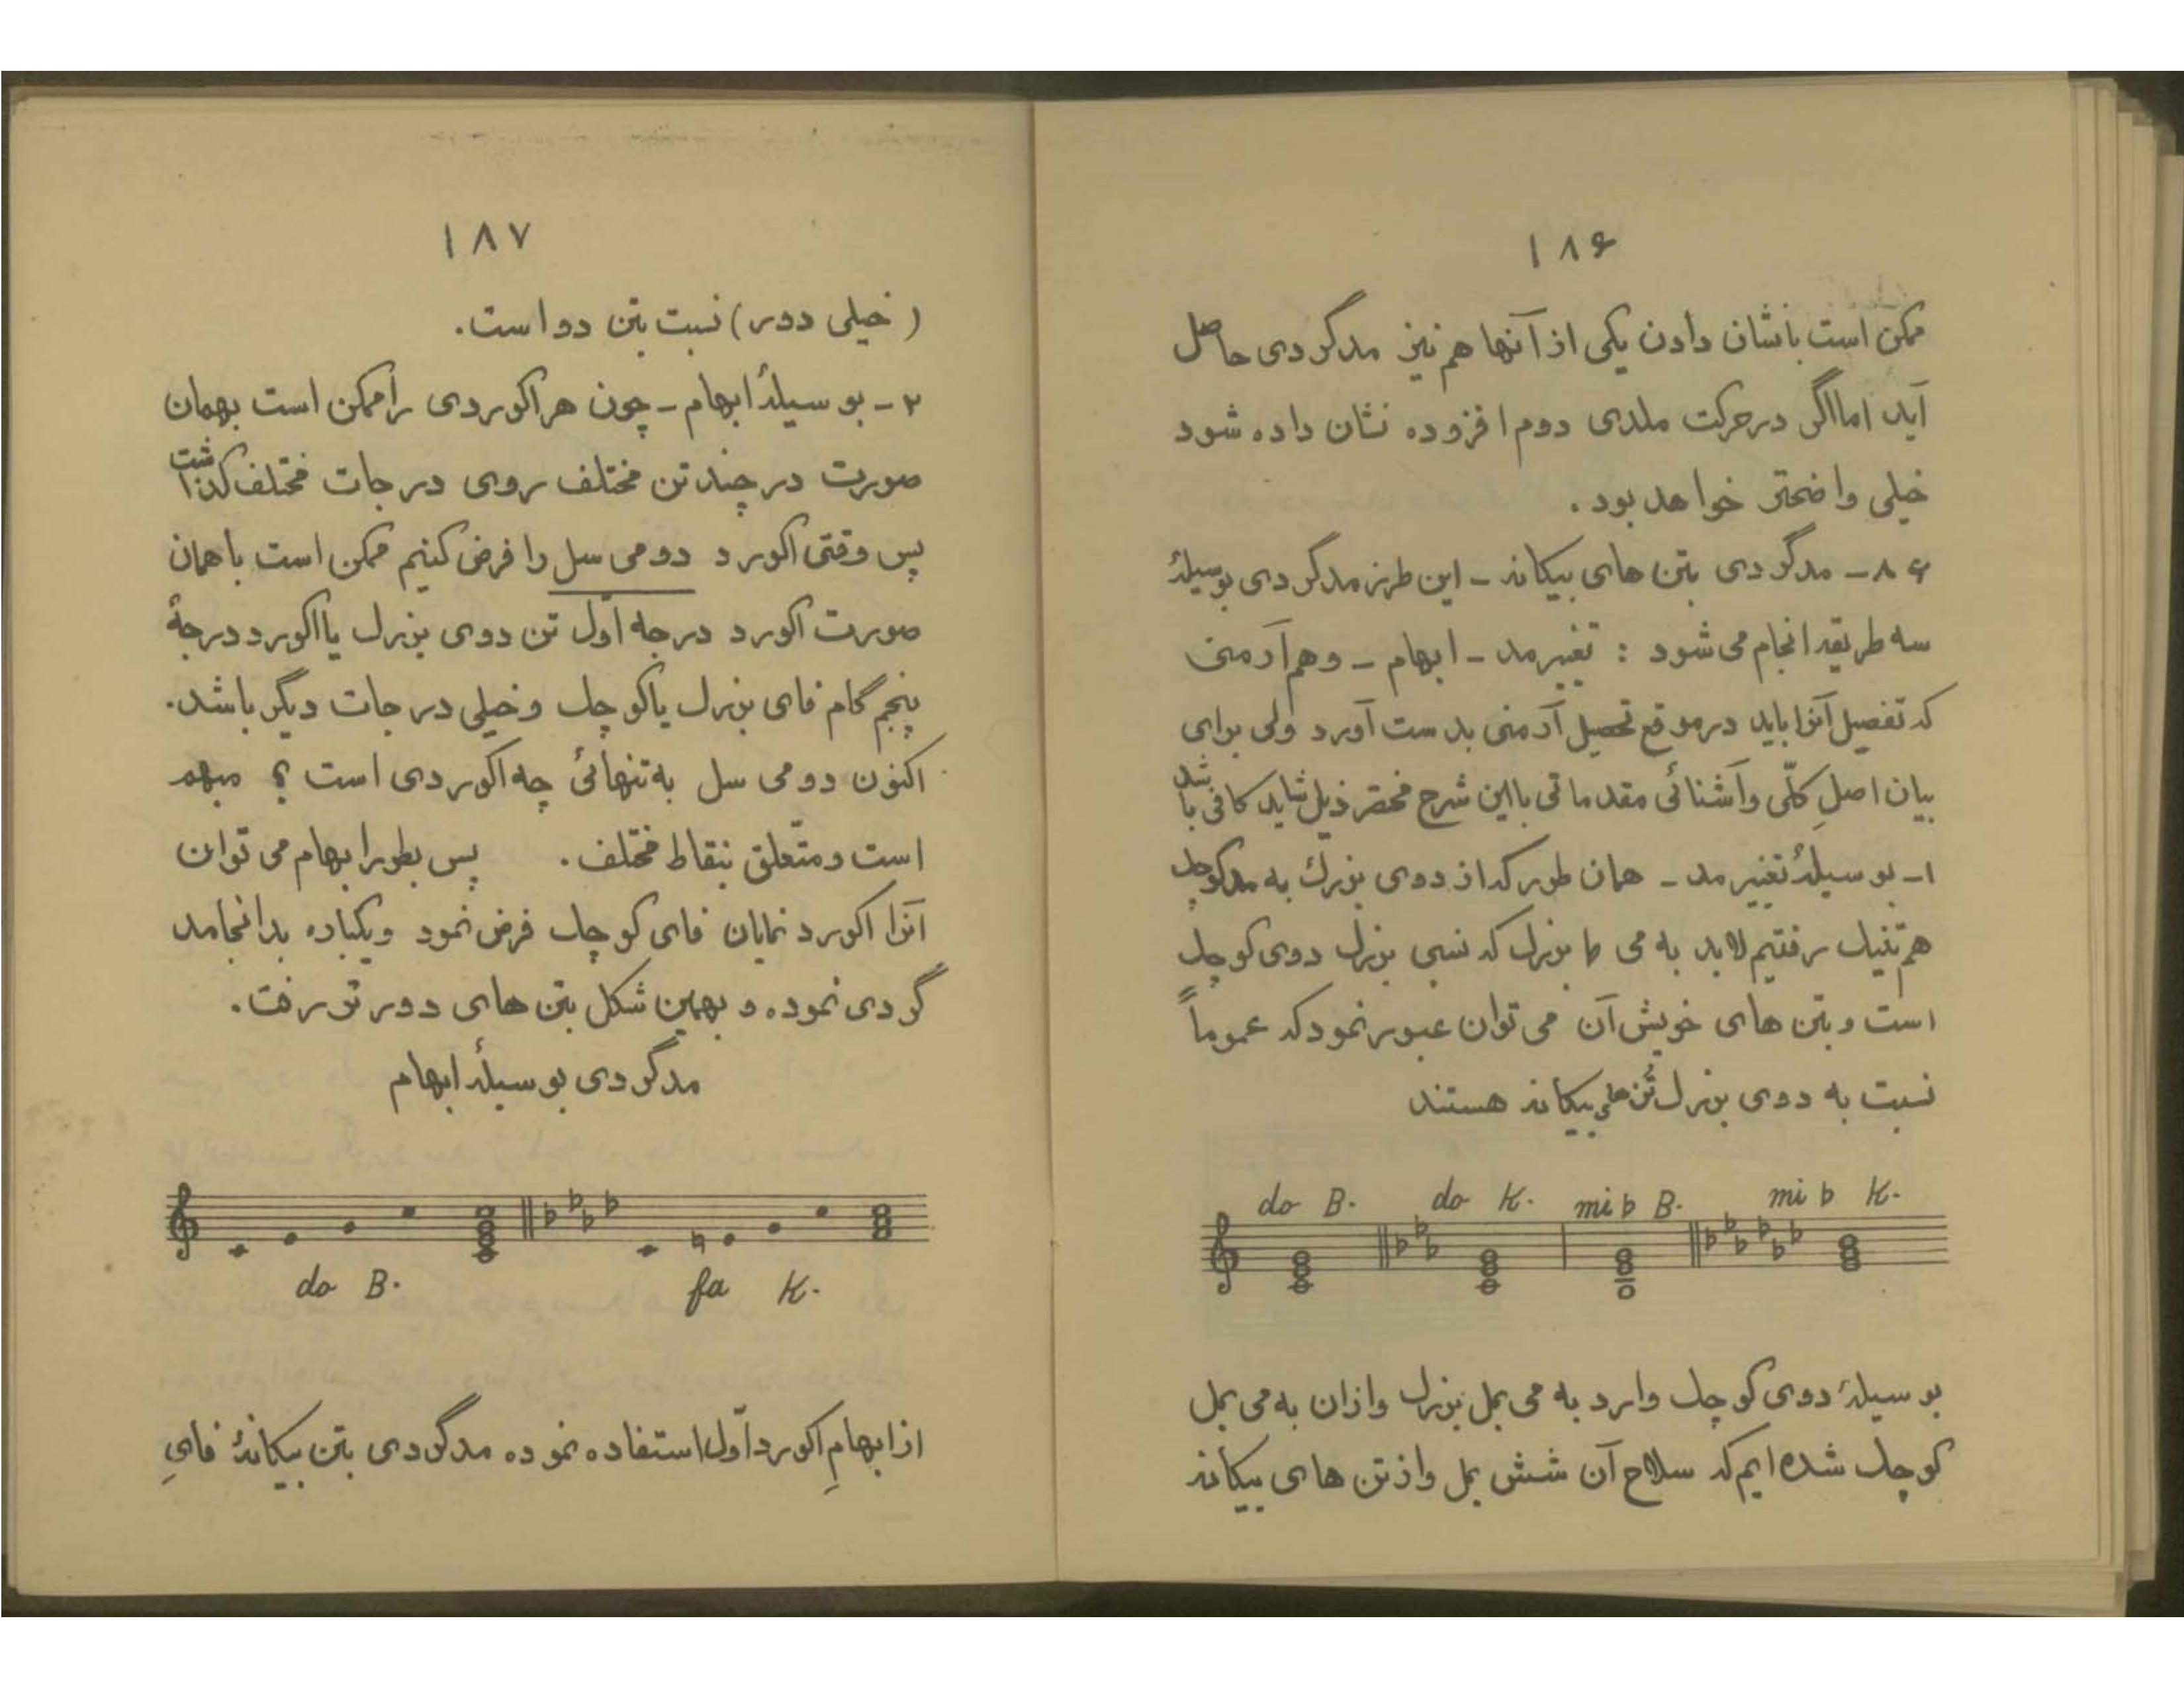 ۱۸۶
ممکن است با نشان دادن یکی از آنها هم نیز مدگردی حاصل
آید اما اگر در حرکت ملدی دوم افزوده نشان داده شود
خیلی واضحتر خواهد بود .
۸۶ - مدگردی بتن های بیگانه - این طرز مدگردی بوسیلهٔ
سه طریقه انجام می شود : تغییر مد - ابهام - و هم آرمنی
که تفصیل آنرا باید در موقع تحصیل آرمنی بدست آورد ولی برای
بیان اصلِ کلّی و آشنائی مقدماتی با این شرح مختصر ذیل شاید کافی باشد
۱- بوسیلهٔ تغییر مد - همان طور که از دوی بزرگ به مد کوچک
هم تنیک رفتیم لابد به می b بزرگ که نسبی بزرگ دوی کوچک
است و بتن های خویش آن می توان عبور نمود که عموماً
نسبت به دوی بزرگ تُن های بیگانه هستند
do B. do K. mi b B. mi b K.
بوسیلهٔ دوی کوچک وارد به می بمل بزرگ و ازان به می بمل
کوچک شده ایم که سلاح آن شش بمل و از تن های بیگانه
۱۸۷
( خیلی دور ) نسبت بتن دو است .
۲ - بوسیلهٔ ابهام - چون هر اکوردی را ممکن است بهمان
صورت در چند تن مختلف روی درجات مختلف گذاشت
پس وقتی اکورد دو می سل را فرض کنیم ممکن است با همان
صورت اکورد درجه اول تن دوی بزرگ یا اکورد درجهٔ
پنجم گام فای بزرگ یا کوچک و خیلی درجات دیگر باشد .
اکنون دو می سل به تنهائی چه اکوردی است ؟ مبهم
است و متّعلق بنقاط مختلف . پس بطور ابهام می توان
آنرا اکورد نمایان فای کوچک فرض نمود و یکباره بدانجا مد
گردی نموده و بهمین شکل بتن های دورتر رفت .
مدگردی بوسیلهٔ ابهام
do B. fa K.
از ابهامِ اکورد اوّل استفاده نموده مدگردی بتن بیگانهٔ فایِ